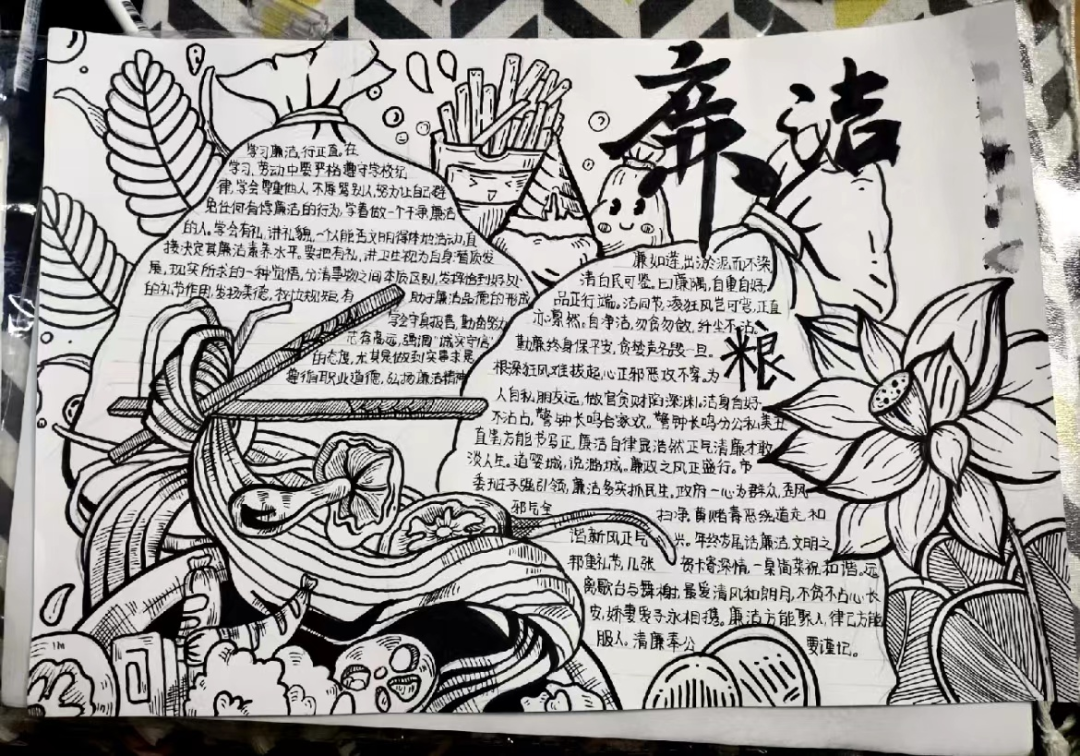 廉洁
粮
学习廉洁,行正直。在
学习、劳动中要严格遵守学校纪
律,学会尊重他人,不辱骂别人,努力让自己避
免任何有悖廉洁的行为,学着做一个干净,廉洁
的人。学会有礼,讲礼貌,一个人能否文明得体地活动,直
接决定其廉洁素养水平。要把有礼,讲卫生视为自身看质发
展,现实所求的一种觉悟,分清事物之间本质区别,发挥恰到好处
的礼节作用,发扬美德,
有
助于廉洁品德的形成
学会守身极善,勤奋努力
志存高远,强调"诚实守信"
的态度,尤其是做到实事求是
遵循职业道德,弘扬廉洁精神
廉如莲,出淤泥而不染
清白民可鉴。曰廉隅,自重自好
品正行端。洁同节,凌狂风岂可尝,正直
亦凛然。自净洁,勿贪勿敛,纤尘不沾。
勤廉终身保平安,贪婪声名毁一旦。
根深狂风难拔起,心正邪恶攻不穿。为
人自私朋友远,做官贪财陷深渊。洁身自好
不沾占,警钟长鸣合家欢。警钟长鸣分公私,美丑
直里方能书写正,廉洁自律显浩然,正气清廉才敢
淡人生。道婴城,说潞城。廉政之风正盛行。市
委班子强引领,廉洁务实抓民生。政府一心为群众,歪风
邪气全
扫净,黄赌毒恶绕道走,和
谐新风正气
兴。年终岁尾话廉洁,文明之
邦重礼节,几张
贺卡寄深情,一桌简菜祝和谐。远
离歌台与舞榭,最爱清风和朗月,不贪不占心长
安,娇妻爱子永相携。廉洁方能聚人,律己方能
服人,清廉奉公
要谨记。